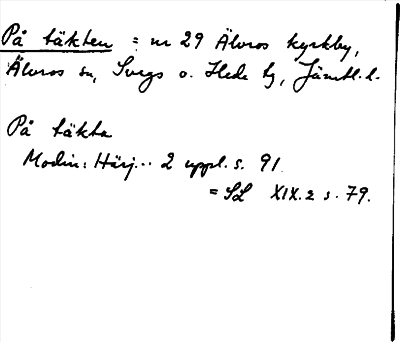 På täkten = nr 29 Älvros kyrkby,
Älvros sn, Svegs o. Hede tg, Jämtl. l.
På täkta
Modin: Härj... 2 uppl. s. 91.
= SL XIX.2 s. 79.